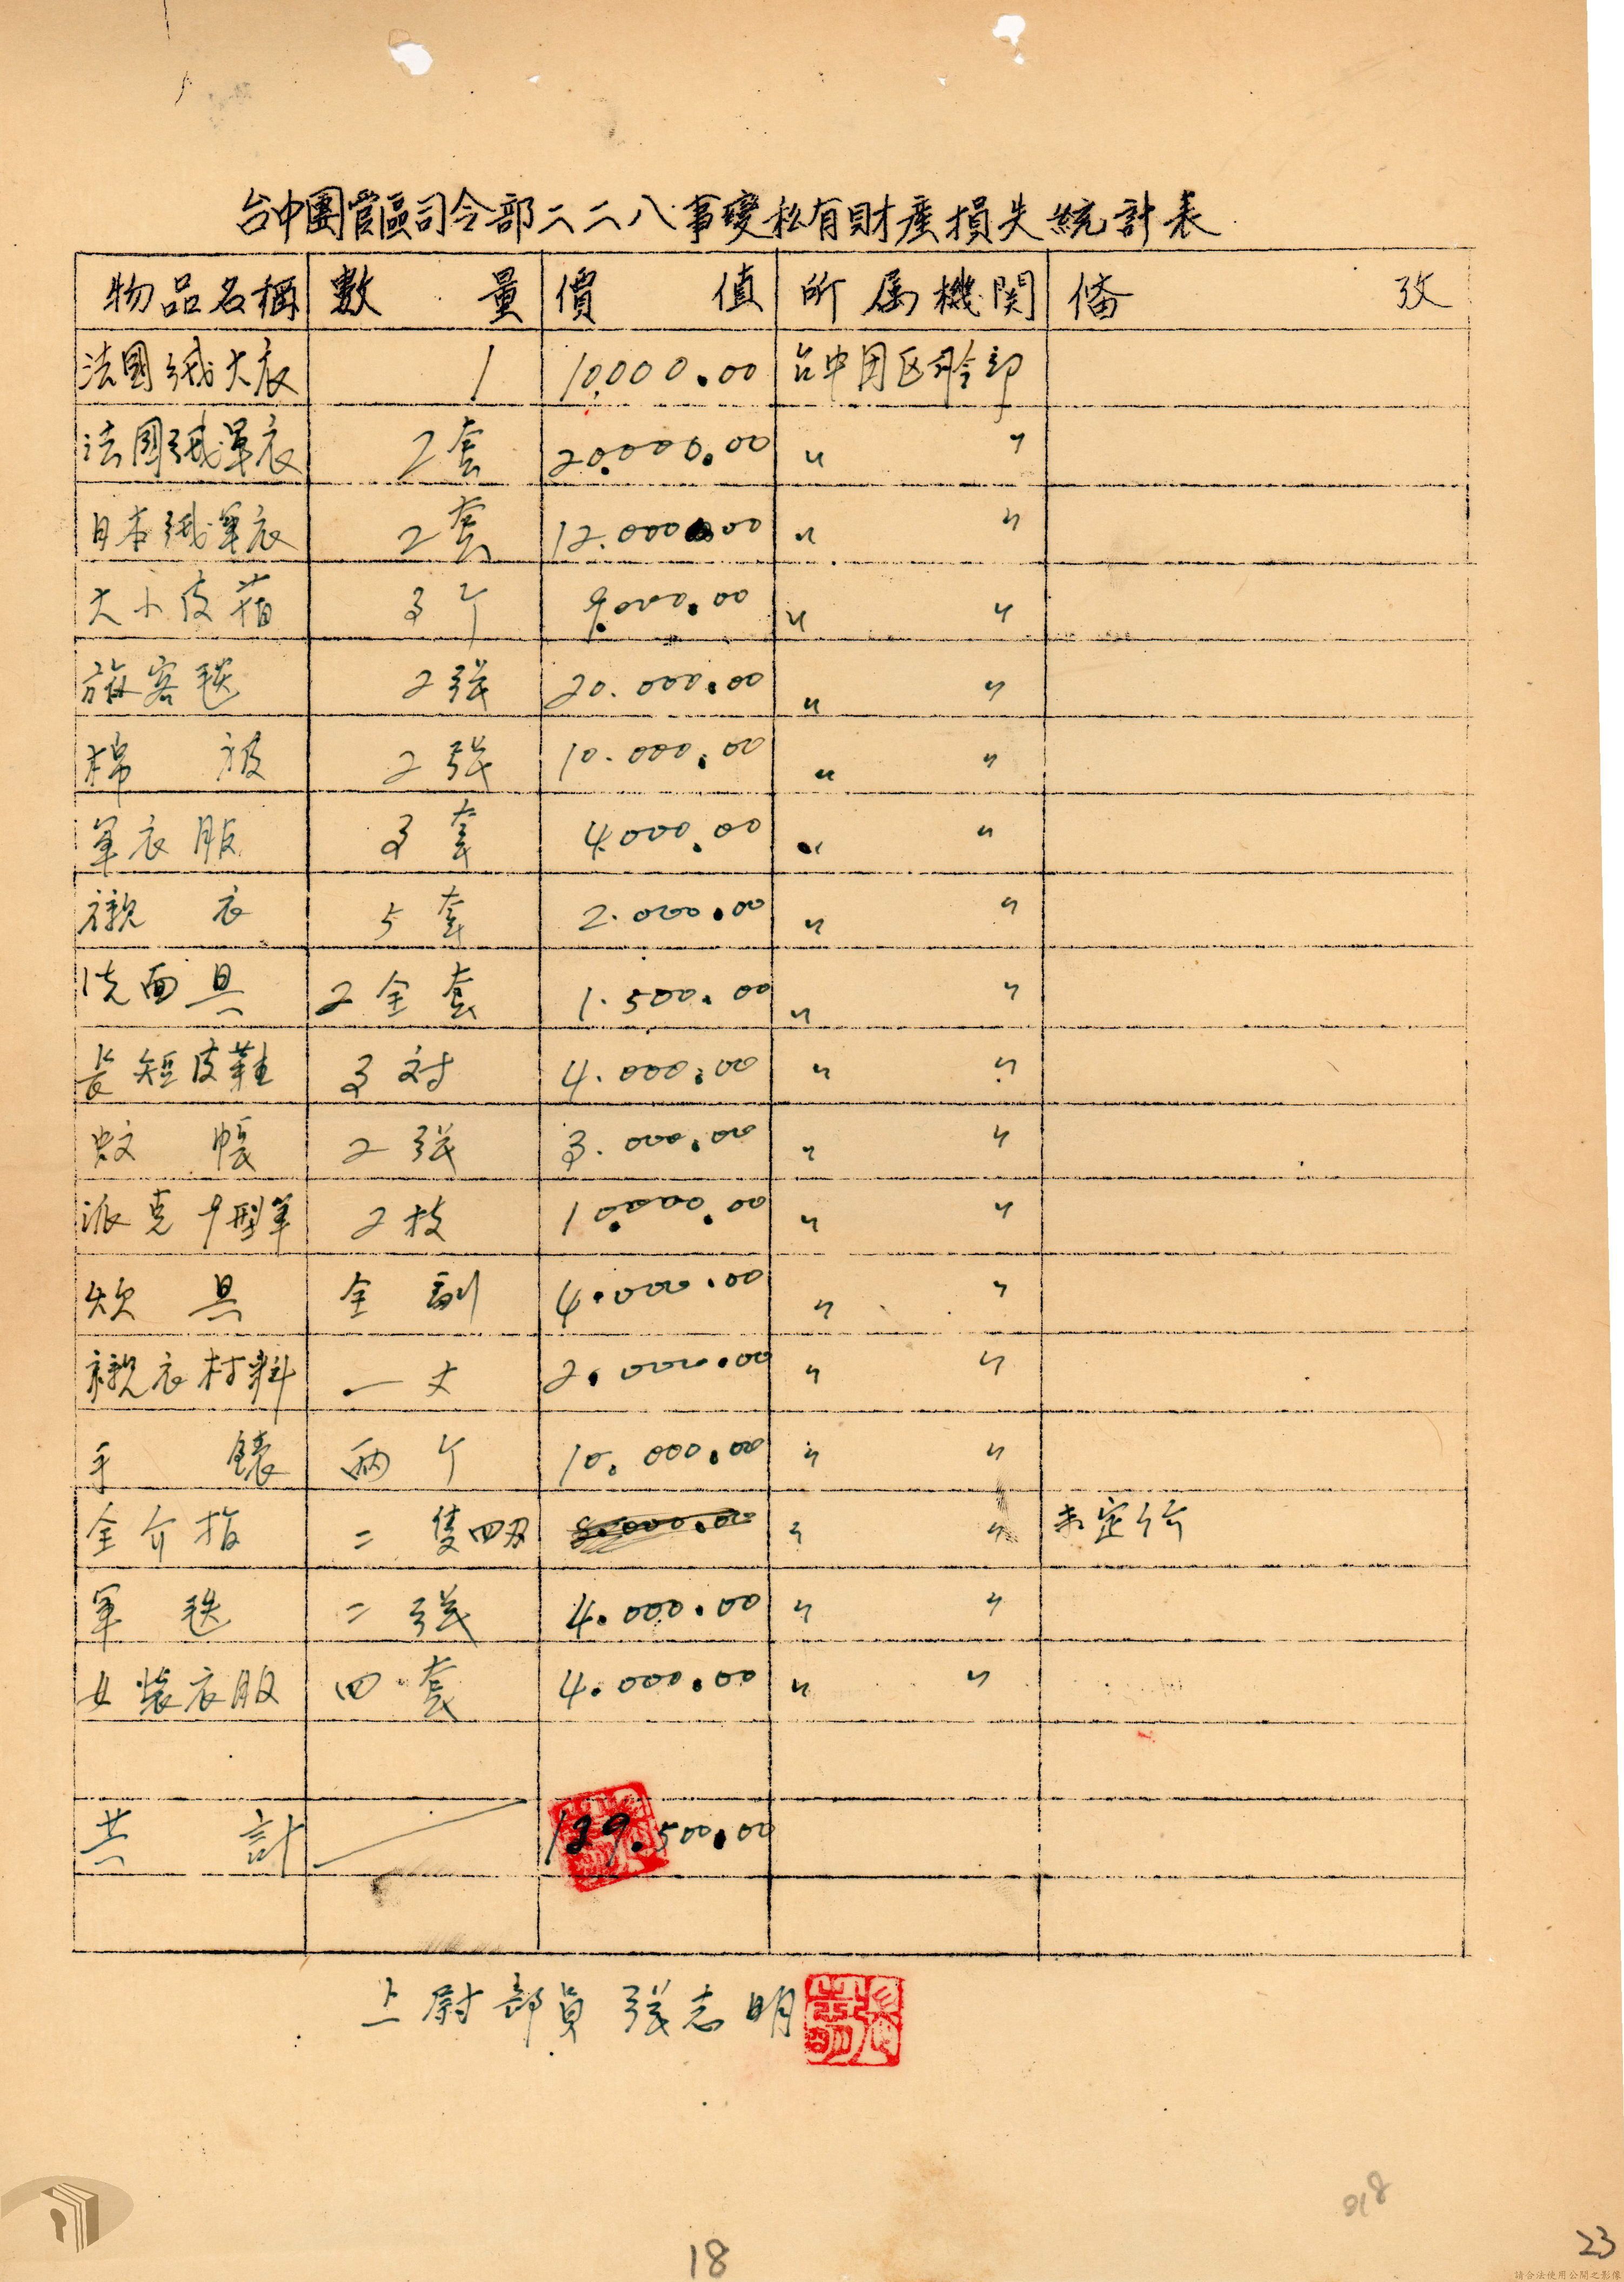 台中團管區司令部二二八事變私有財產損失統計表
物品名稱 數量 價值 所属機関 俻攷
法國絨大衣 1 10,000.00 台中团区司令部
法國絨軍衣 2套 20.000.00 〃 〃
日本絨軍衣 2套 12.000.00 〃 〃
大小皮箱 3个 000.00 〃 〃
旅客毯 2張 20.000.00 〃 〃
棉被 2張 10.000.00 〃 〃
軍衣服 3套 4000.00 〃 〃
襯衣 5套 2.000.00 〃 〃
洗面具 2全套 1.500.00 〃 〃
長短皮鞋 3対 4.000.00 〃 〃
蚊帳 2張 3.000.00 〃 〃
派克 型筆 2枝 10.000.00 〃 〃
炊具 全副 4.000.00 〃 〃
襯衣材料 一丈 2.000.00 〃 〃
手錶 両个 10.000.00 〃 〃
金介指 二隻四刄 8.000.00 〃 〃 未定价
軍毯 二張 4.000.00 〃 〃
女裝衣服 四套 4.000.00 〃 〃
共計 129.500.00
上尉部員 張志明
918
18
23
請合法使用公開之影像